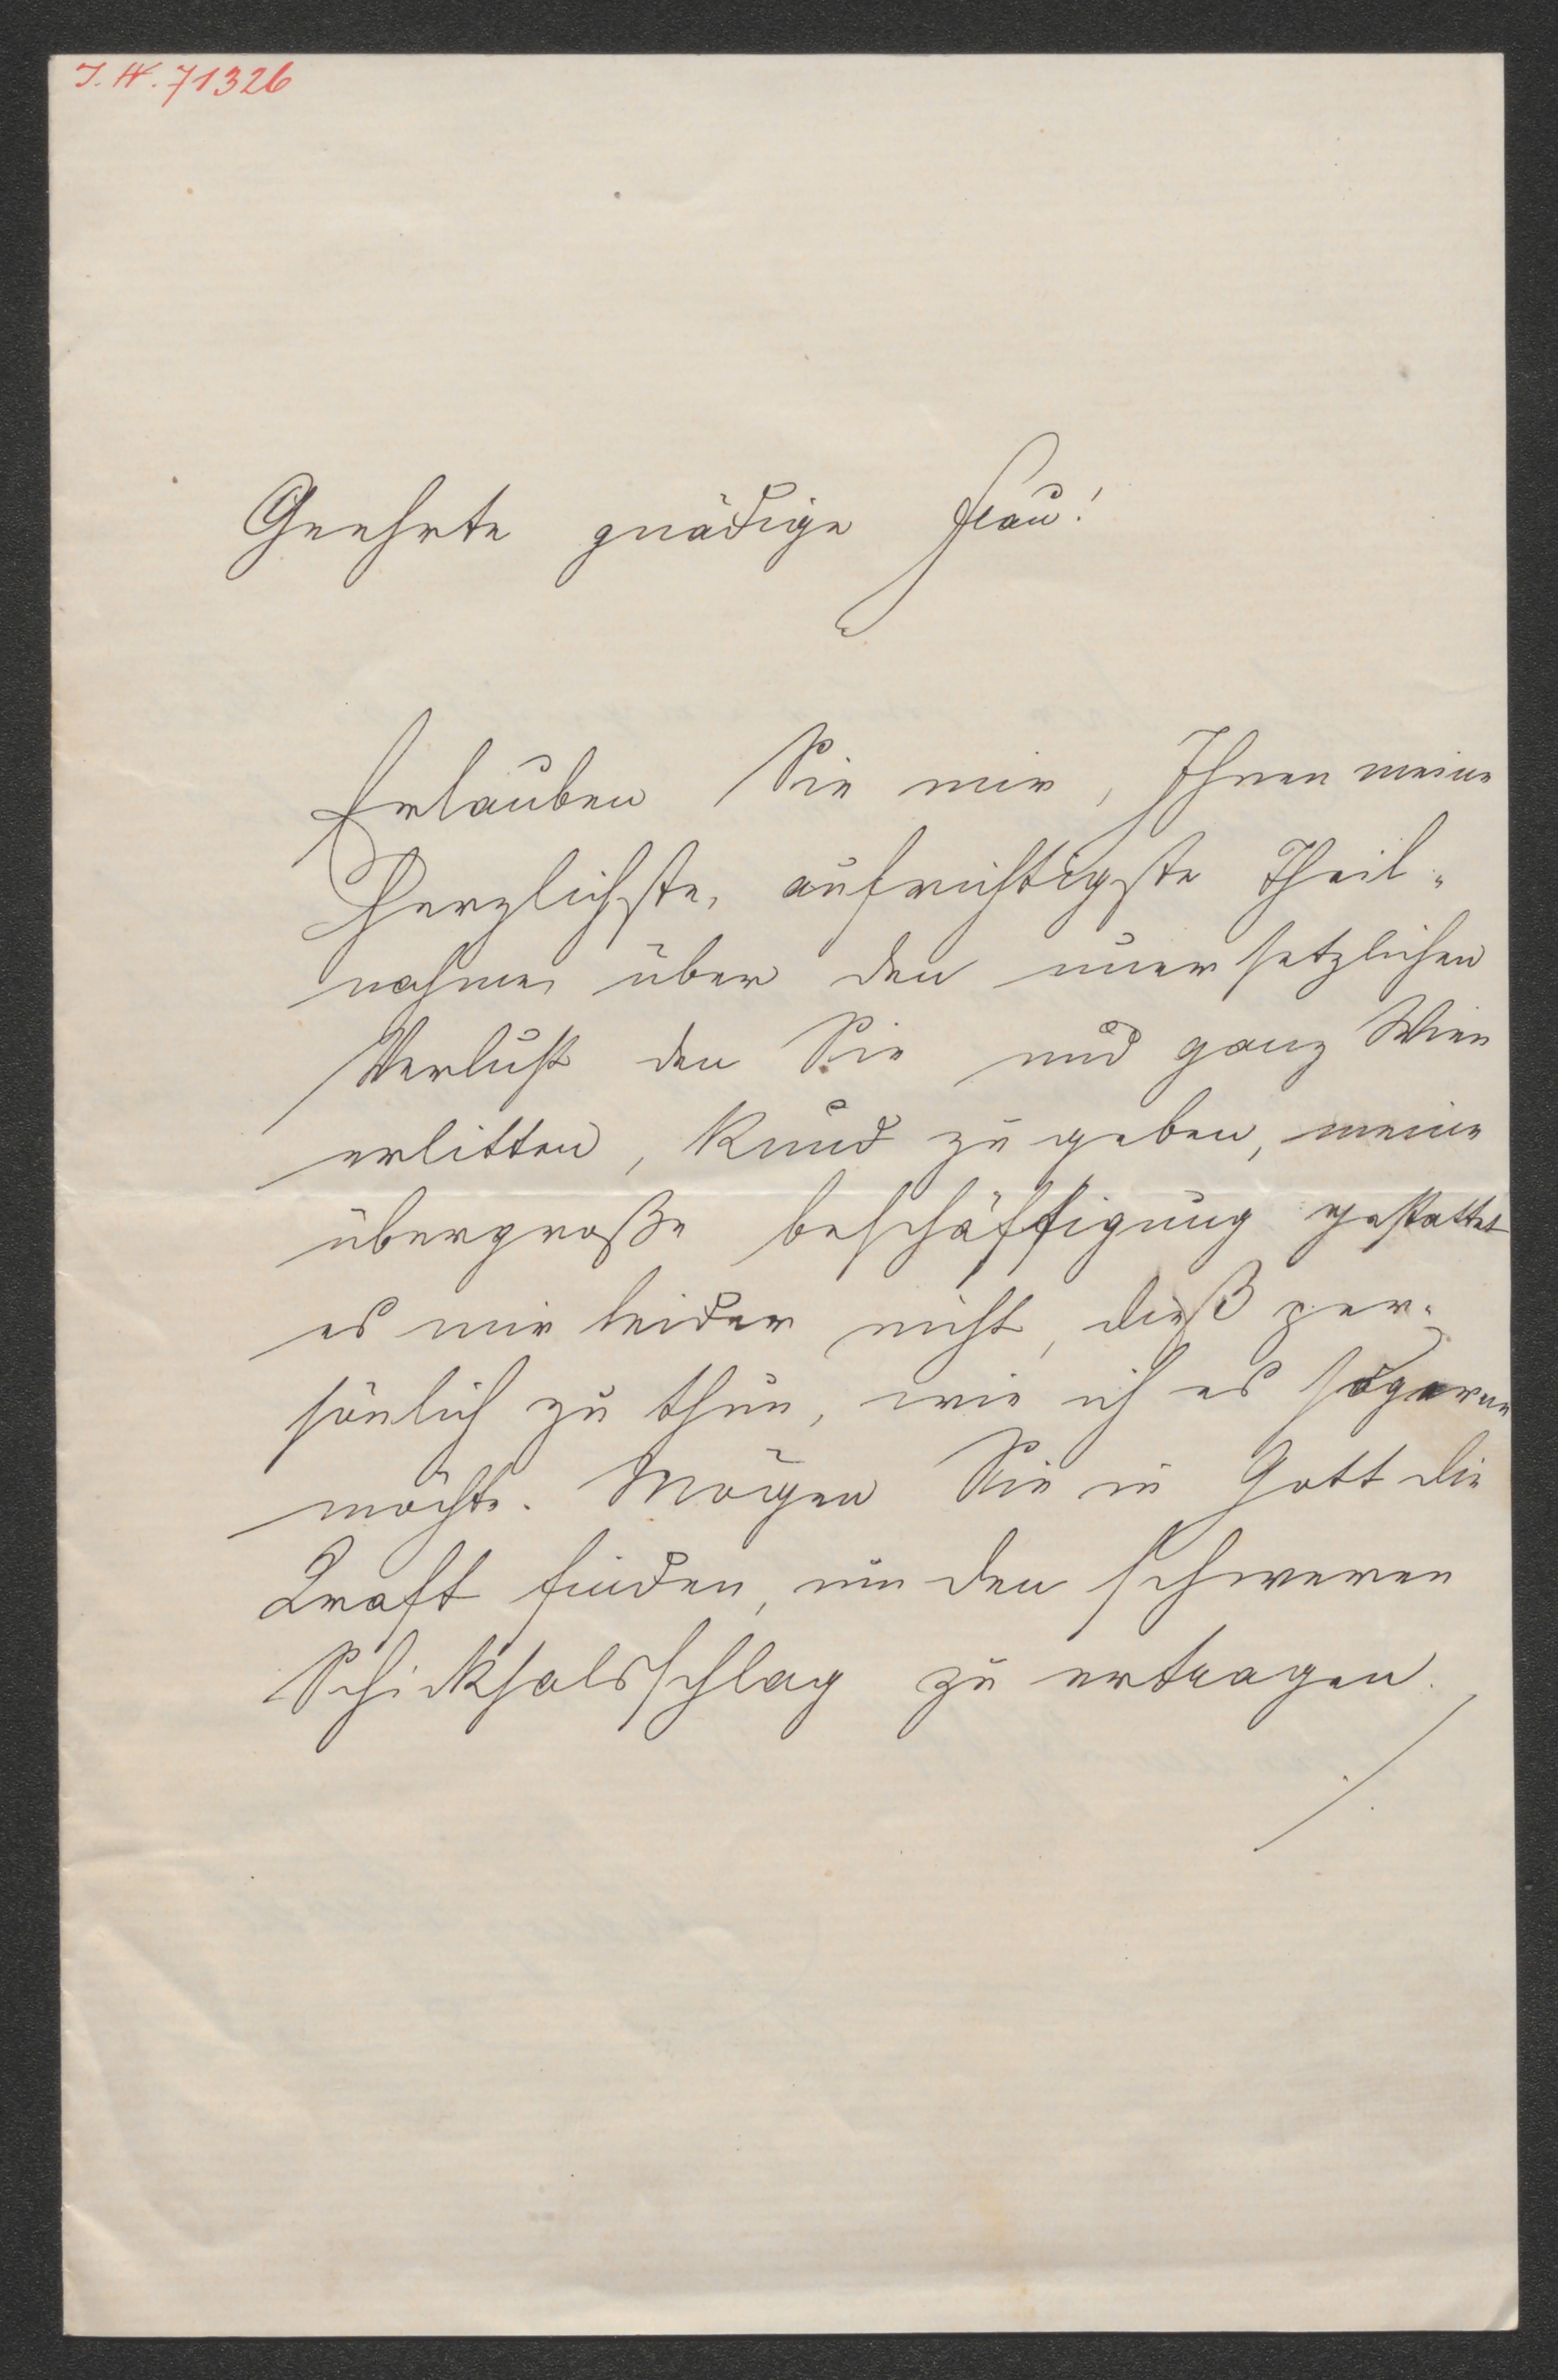 J. N. 71326
Geehrte gnädige Frau!
Erlauben Sie mir, Ihnen meine
herzlichste, aufrichtigste Theil-
nahme, über den unersetzlichen
Verlust den Sie und ganz Wien
erlitten, kund zu geben, meine
übergroße beschäftigung gestattet
es mir leider nicht, dieß per-
sönlich zu thun, wie ich es so gerne
möchte. Mögen Sie in Gott die
Kraft finden, um den schweren
Schicksalsschlag zu ertragen.
./.